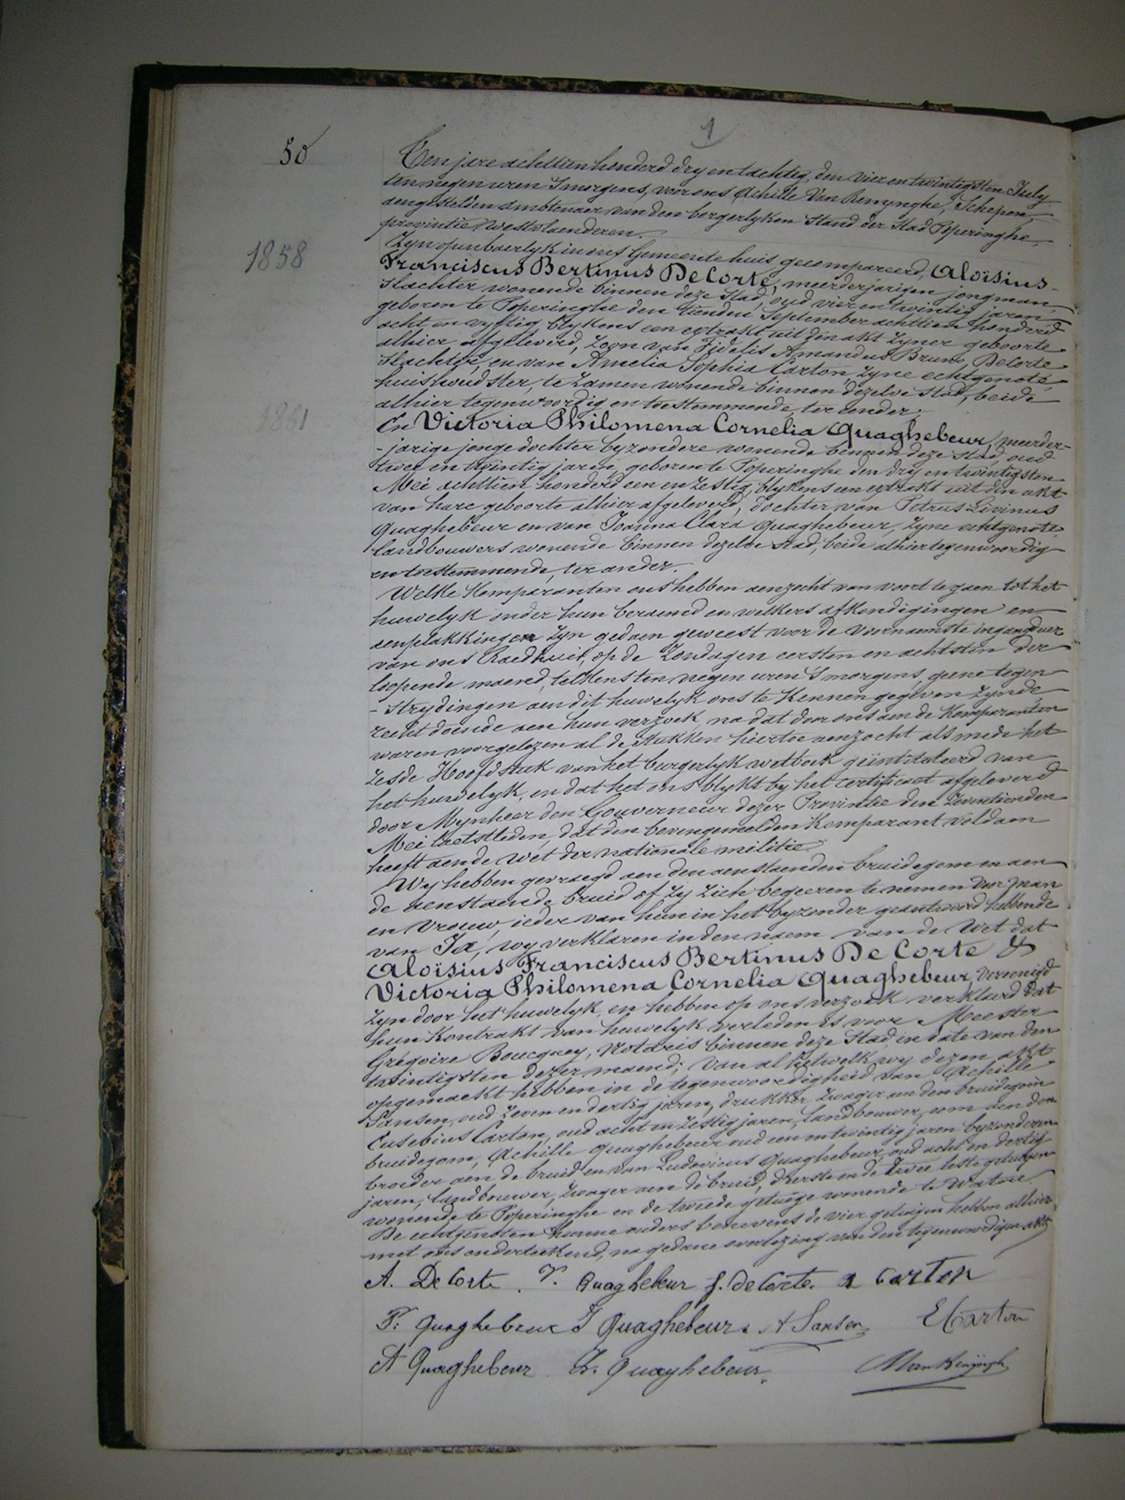 1
50
Ten jare achttien honderd dry en tachtig, den vier en twintigsten July
ten negen uren 's morgens, voor ons Achille Van Renynghe, Schepen,
aengestelden ambtenaer van den borgerlyken Stand der Stad Poperinghe
provintie Westvlaenderen.
Zyn openbaerlyk in ons Gemeentehuis gecompareerd, Aloïsius-
1858
Franciscus Bertinus DeCorte, meerderjarigen jongman,
slachter wonende binnen deze Stad, oud vier en twintig jaren,
geboren te Poperinghe den tienden September achttien honderd
acht en vyftig, blykens een extrakt uit den akt zyner geboorte
alhier afgeleverd, zoon van Fidelis Amandus Bruno DeCorte
slachter, en van Amelia Sophia Carton zyne echtgenote,
huishoudster, te zamen wonende binnen dezelve stad, beide
alhier tegenwoordig en toestemmende, ter eender.
1861
En Victoria Philomena Cornelia Quaghebeur, meerder-
-jarige jonge dochter byzondere wonende binnen deze stad, oud
twee en twintig jaren, geboren te Poperinghe den dry en twintigsten
Mei achttien honderd een en zestig, blykens een extrakt uit den akt
van hare geboorte alhier afgeleverd, dochter van Petrus Livinus
Quaghebeur en van Joanna Clara Quaghebeur, zyne echtgenote
landbouwers wonende binnen dezelve stad, beide alhier tegenwoordig
en toestemmende, ter ander.
Welke komparanten ons hebben aenzocht van voort te gaen tot het
huwelyk onder hun beraemd en welkers afkondigingen en
aenplakkingen zyn gedaen geweest voor de voornaemste ingangdeur
van ons Raedhuis, op de Zondagen eersten en achtsten der
loopende maend, telkens ten negen uren 's morgens, geene tegen
-strydingen aen dit huwelyk ons te kennen gegeven zynde,
recht doende aen hun verzoek, na dat door ons aen de komparanten
waren voorgelezen al de stukken hiertoe aenzocht als mede het
zesde Hoofdstuk van het burgerlyk wetboek geïntituleerd van
het huwelyk, en dat het ons blykt by het certificaet afgeleverd
door Mynheer den Gouverneur dezer Provintie den zeventienden
Mei laetstleden, dat den bovengemelden komparant voldaen
heeft aen de wet der nationale militie.
Wy hebben gevraegd aen den aenstaenden bruidegom en aen
de aenstaende bruid of zy zich begeeren te nemen voor man
en vrouw, ieder van hun in het byzonder geantwoord hebbende
van Ja, wy verklaren in den naem van de Wet dat
Aloïsius Franciscus Bertinus De Corte &
Victoria Philomena Cornelia Quaghebeur, vereenigd
zyn door het huwelyk, en hebben op ons verzoek verklaerd dat
hun Kontrakt van huwelyk verleden is voor Meester
Grégoire Boucquey, Notaris binnen deze Stad in date van den
twintigsten dezer maend; Van al hetwelk wy dezen akt
opgemaekt hebben in de tegenwoordigheid van Achille
Sansen, oud zeven en dertig jaren, drukker, zwager aen den bruidegom
Eusebius Carton, oud acht en zestig jaren, landbouwer, oom aen den
bruidegom, Achille Quaghebeur oud een en twintig jaren byzonderen
broeder aen de bruid en van Ludovicus Quaghebeur, oud acht en dertig
jaren, landbouwer, zwager aen de bruid, d'eerste en de twee leste getuigen
wonende te Poperinghe en de tweede getuige wonende te Watou.
De echtgenoten hunne ouders benevens de vier getuigen hebben alhier
met ons onderteekend, na gedane voorlezing van den tegenwoordigen akt
A. DeCorte. V. Quaghebeur f. DeCorte. a Carton
P. Quaghebeur J Quaghebeur. A Sansen E Carton
A Quaghebeur L. Quaghebeur. AVanRenynghe